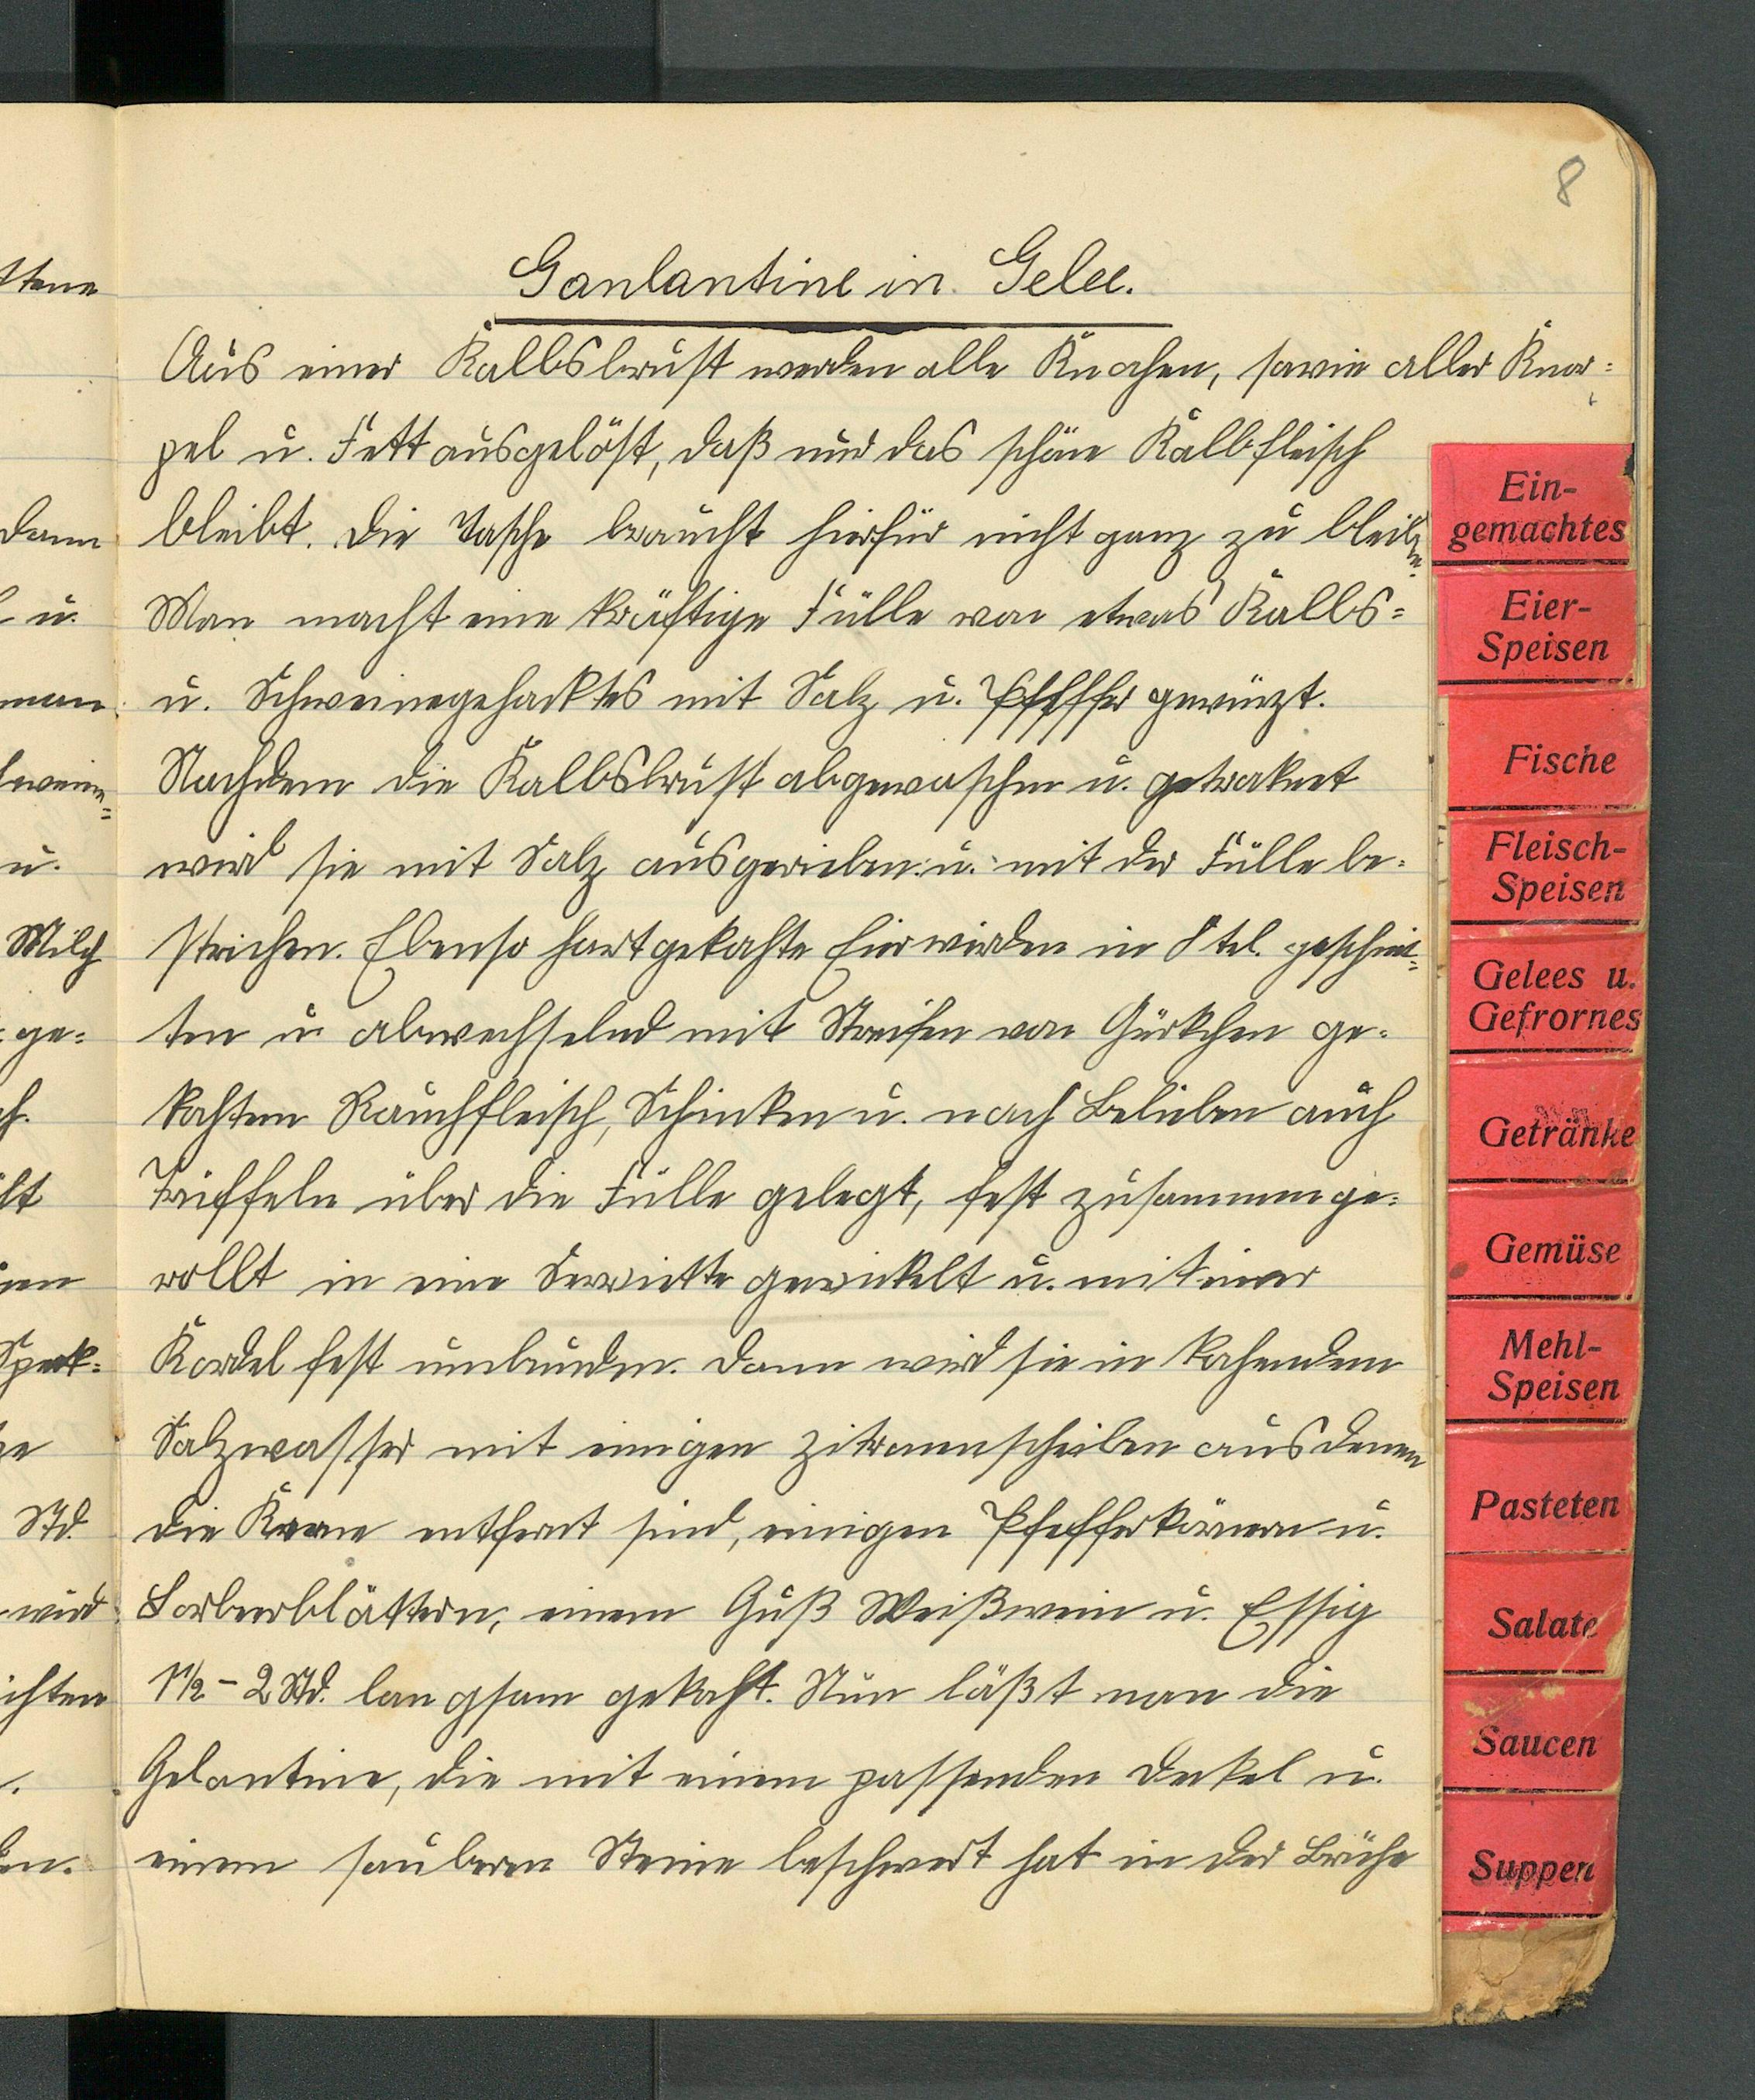 8
Ganlantine in Gelee.
Aus einer Kalbsbrust werden alle Knochen, sowie aller Knor=
pel u. Fett ausgelöst, daß nur das schöne Kalbfleisch
bleibt. Die Tasche braucht hierfür nicht ganz zu bleiben.
Man macht eine kräftige Fülle von etwas Kalbs=
u. Schweinegehacktes mit Salz u. Pfeffer gewürzt.
Nachdem die Kalbsbrust abgewaschen u. getroknet
wird sie mit Salz ausgerieben u. mit der Fülle be=
strichen. Ebenso hartgekochte Eier wirden in 8 tel. geschnit=
ten u. abwechselnd mit Streifen von Gürkchen ge=
kochtem Rauchfleisch, Schinken u. nach Belieben auch
Trüffeln über die Fülle gelegt, fest zusammenge=
rollt in eine Serviette gewickelt u. mit einer
Kordel fest umbunden. Dann wird sie in kochendem
Salzwasser mit einigen Zitronenscheiben aus denen
die Kerne entfernt sind, einigen Pfefferkörnern u.
Lorbeerblättern, einem Guß Weißwein u. Essig
1½ - 2 Std. langsam gekocht. Nun läßt man die
Gelantine, die mit einem passenden Deckel u.
einem sauberen Steine beschwert hat in der Brühe
ttene
dann
u.
man
weine=
u.
Milch
ge=
ch.
Speck=
Std.
wird
ichten
Ein-
gemachtes
Eier-
Speisen
Fische
Fleisch-
Speisen
Gelees u.
Gefrornes
Getränke
Gemüse
Mehl-
Speisen
Pasteten
Salate
Saucen
Suppen